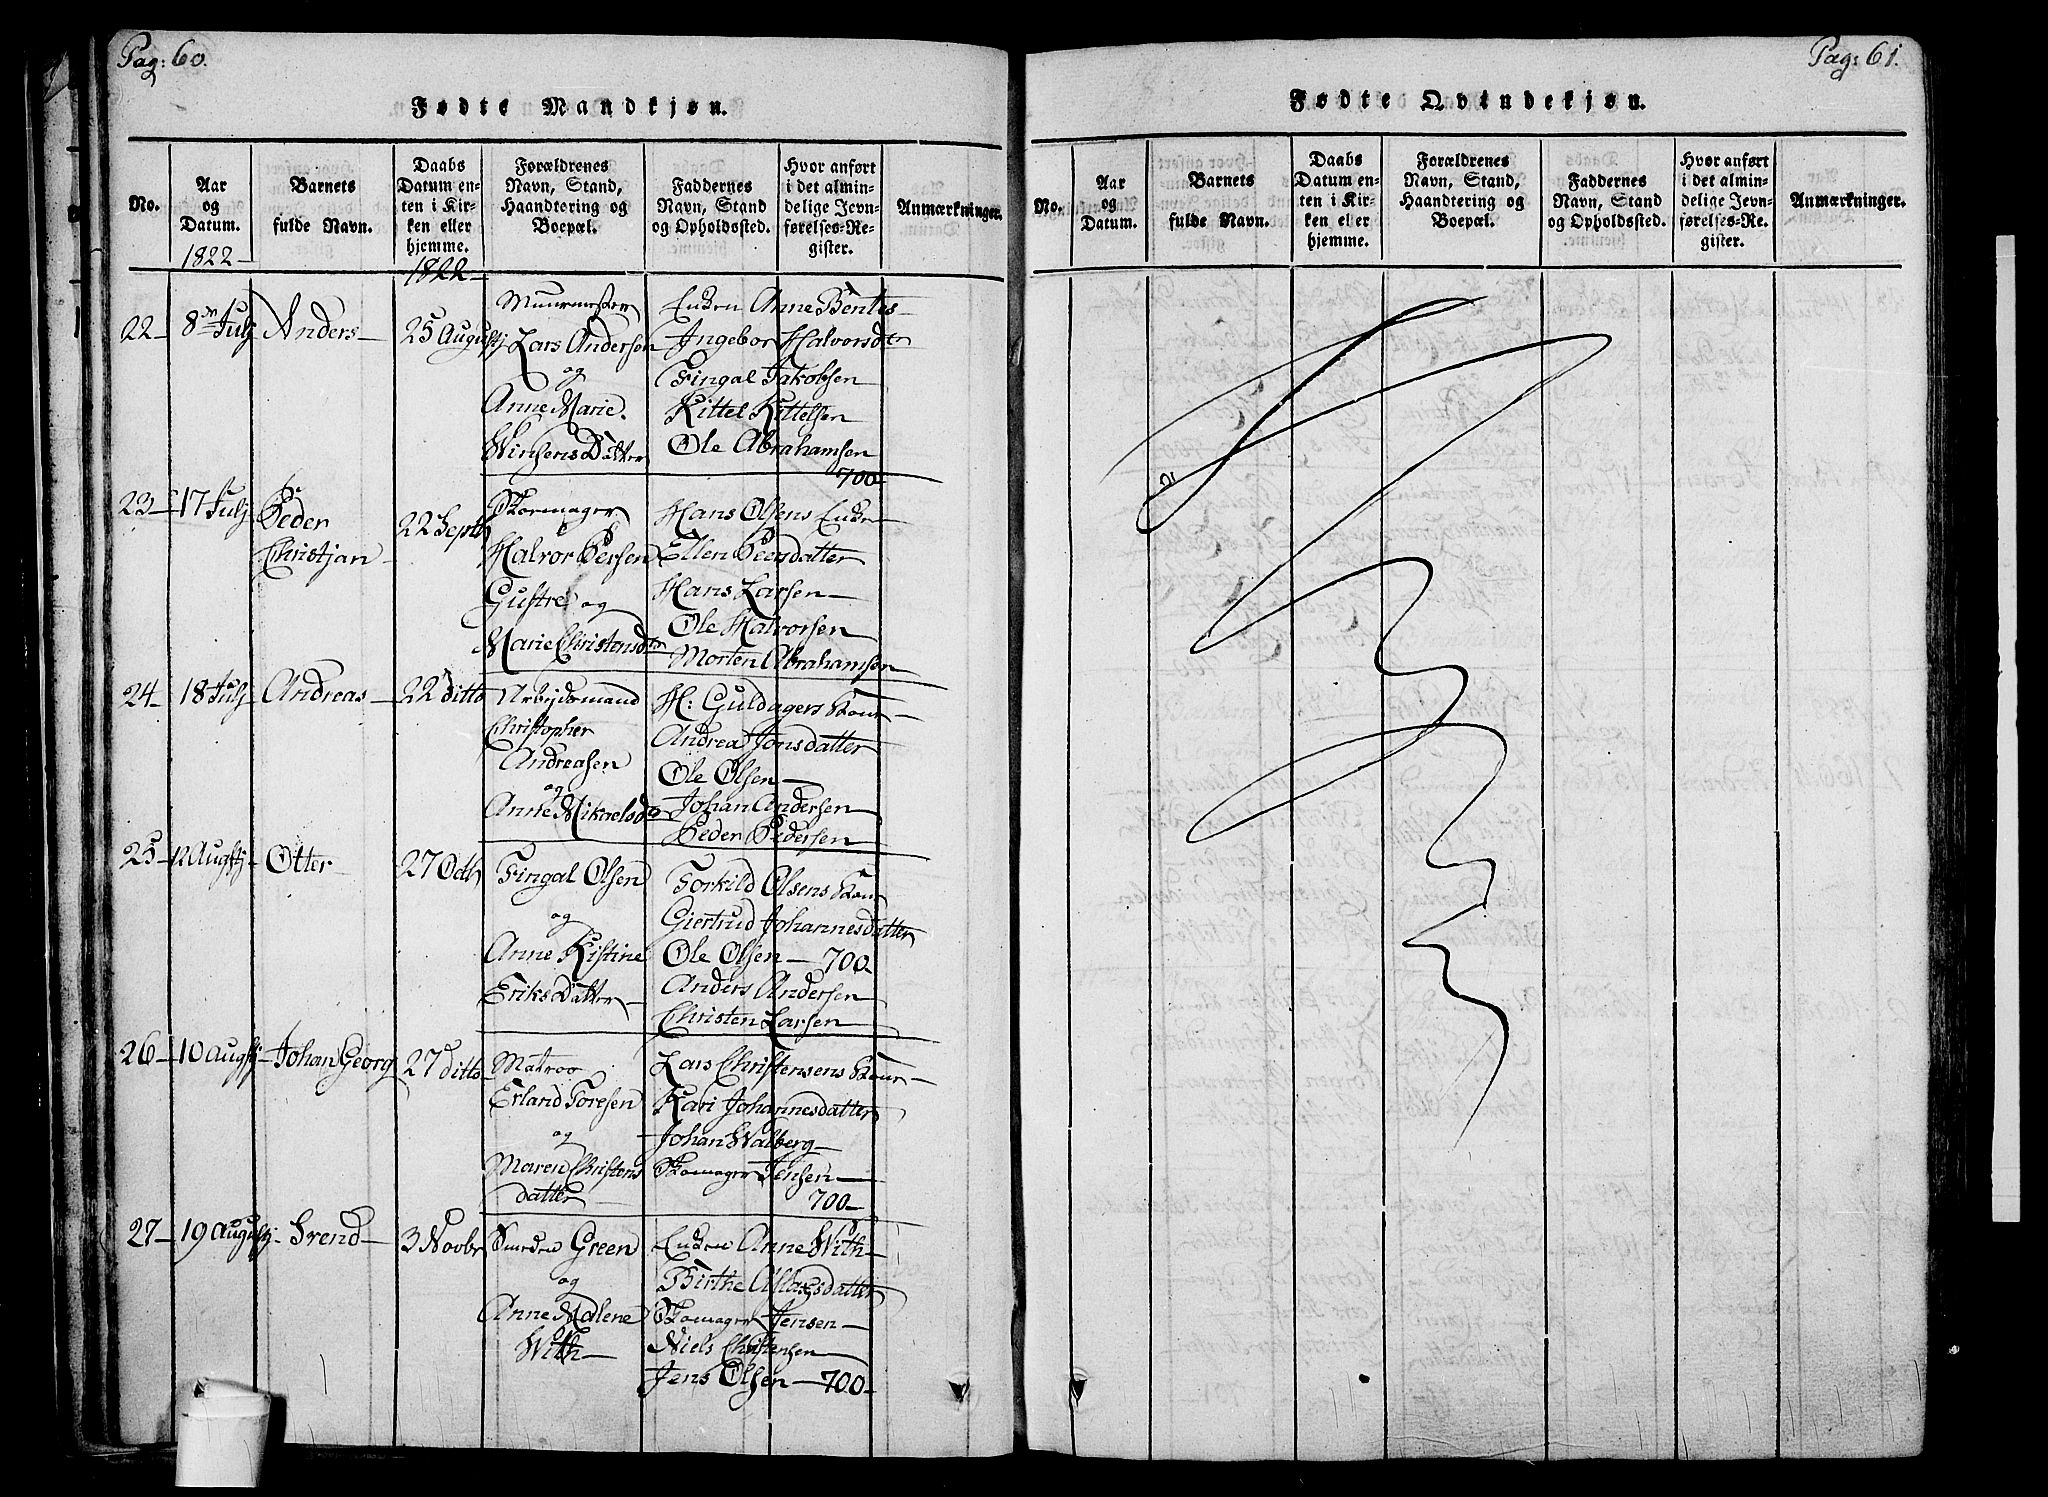 Pag: 60.
Fødte Mandkjøn.
No.
Aar og Datum.
Barnets fulde Navn.
Daabs Datum enten i Kirken eller hjemme.
Forældrenes Navn, Stand, Haandtering og Boepæl.
Faddernes Navn, Stand og Opholdssted.
Hvor anført i det almindelige Jevnførelses-Register.
Anmærkninger.
1822
1822
22 8de Julj Anders 25 Augustj
Muurmester
Lars Andersen
og
Anne Marie
Datter
Enken Anne Bentes
Ingebor Halvorsdtr
Fingal Jakobsen
Kittel Kittelsen
Ole Abrahamsen
700
23 17 Julj Peder
Christjan
22 Septb
Skomager
Halvor Persen
og
Marie Christensdtr
Hans Olsens Enke
Ellen Peersdatter
Hans Larsen
Ole Halvorsen
Morten Abrahamsen
24 18 Julj Andreas 22 ditto
Arbejdsmand
Christopher
Andreasen
og
Anne Mikaelsdr
H: Guldagers Kone
Andrea Jonsdatter
Ole Olsen
Johan Andersen
Peder Pedersen
25 12 Augstj Otter 27 Octb
Fingal Olsen
og
Anne Kistine
Eriks Datter
Torkild Olsens Kone
Giertrud Johannesdatter
Ole Olsen 700
Anders Andersen
Christen Larsen
26 10 Augstj Johan Georg 27 ditto
Matros
Erland Toresen
og
Maren Christens
datter
Lars Christensens Kone
Kari Johannesdatter
Johan Walberg
Skomager Jensen
700
27 19 Augustj Svend 3 Novbr
Green
og
Anne Malene
With
Enken Anne With
Birthe Aslaxsdatter
Skomager Jensen
Niels Christensen
Jens Olsen 700
Pag: 61.
Fødte Qvindekjøn.
No.
Aar og Datum.
Barnets fulde Navn.
Daabs Datum enten i Kirken eller hjemme.
Forældrenes Navn, Stand, Haandtering og Boepæl.
Faddernes Navn, Stand og Opholdssted.
Hvor anført i det almindelige Jevnførelses-Register.
Anmærkninger.